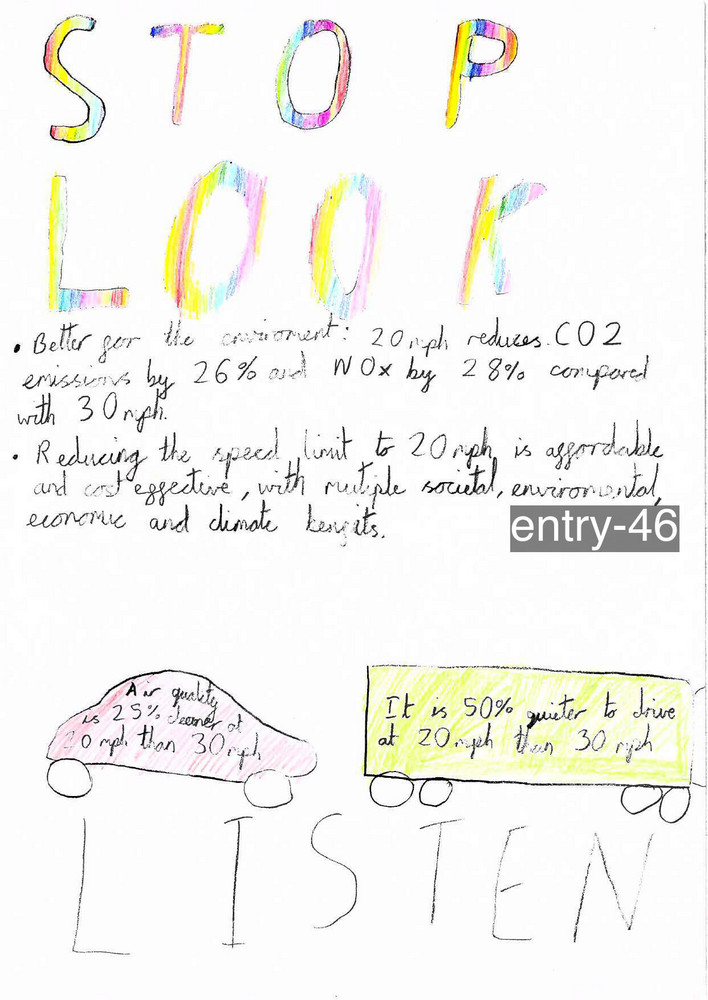 STOP
LOOK
• Better for the enviroment: 20mph reduces CO2
emissions by 26% and NOx by 28% compared
with 30mph.
• Reducing the speed limit to 20mph is affordable
and cost effective, with multiple societal, enviromental,
economic and climate benefits.
entry-46
Air quality
is 25% cleaner at
20 mph than 30mph
It is 50% quieter to drive
at 20mph than 30 mph
LISTEN